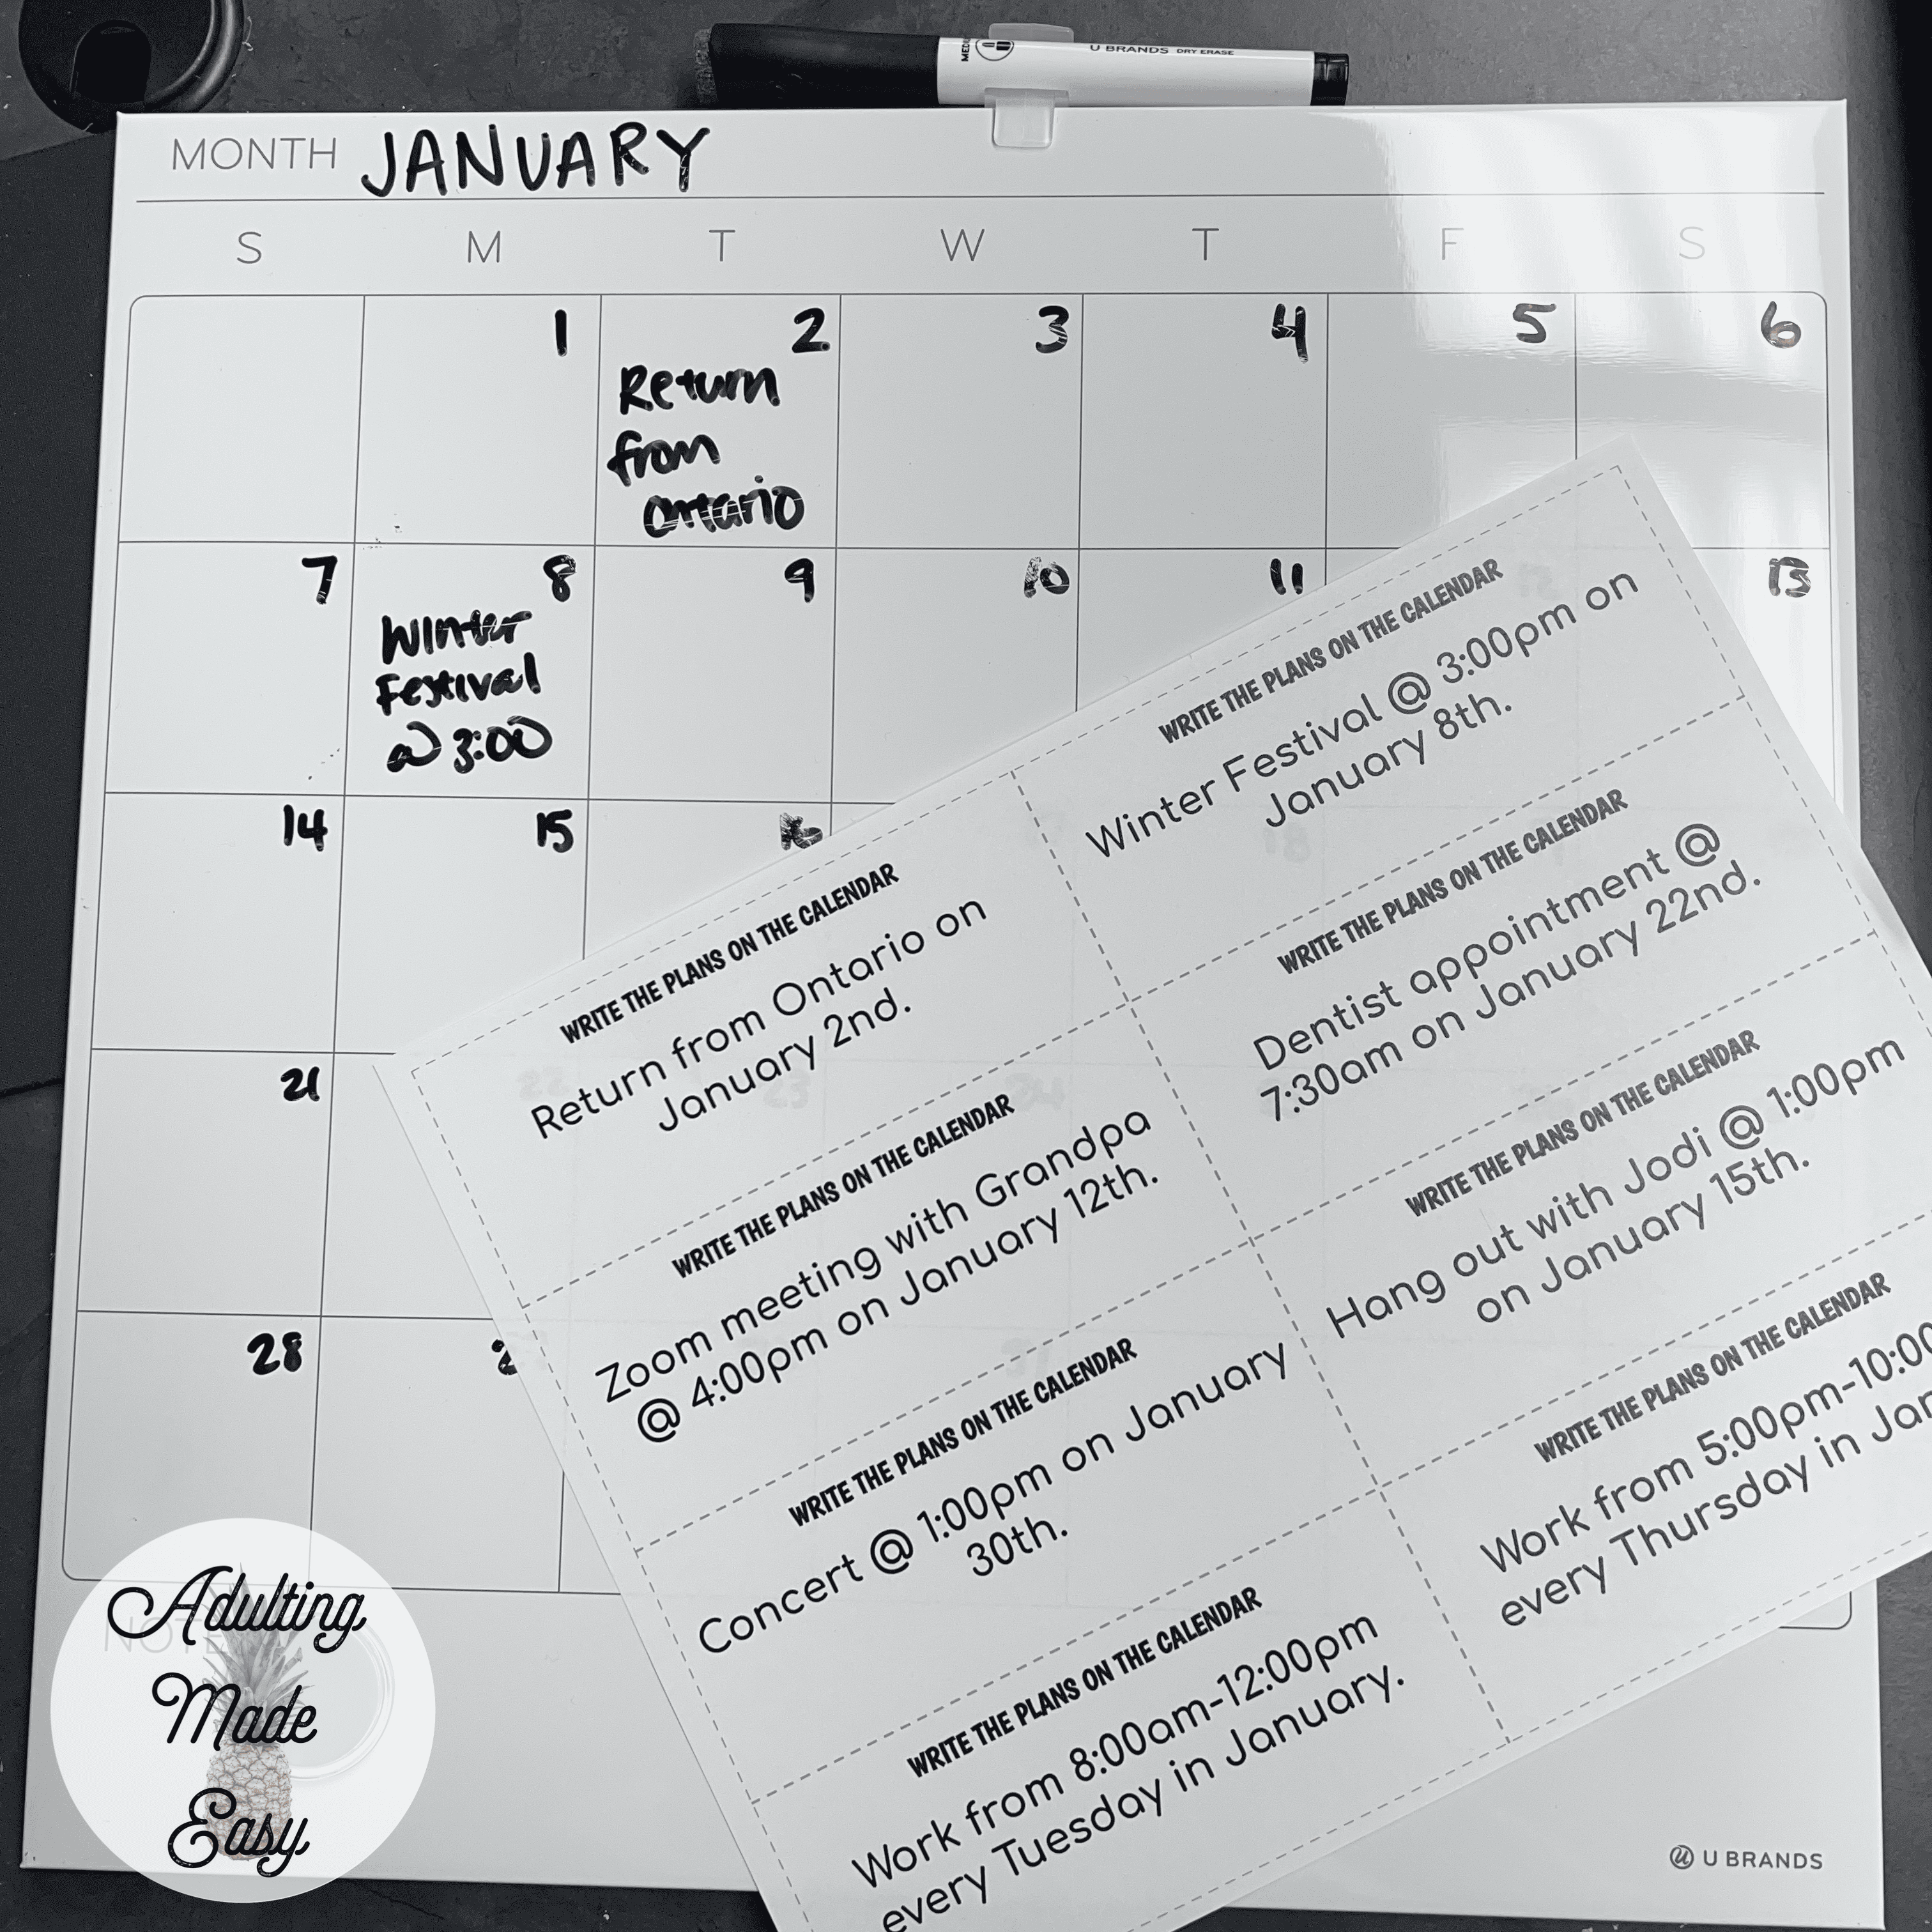 MEDIUM
U BRANDS DRY ERASE
MONTH JANUARY
S M T W T F S
1 2 3 4 5 6
Return
from
Ontario
7 8 9 10 11 12 13
Winter
Festival
@ 3:00
14 15 16 18
21 22 23 24
28
31
WRITE THE PLANS ON THE CALENDAR
Return from Ontario on
January 2nd.
WRITE THE PLANS ON THE CALENDAR
Winter Festival @ 3:00pm on
January 8th.
WRITE THE PLANS ON THE CALENDAR
Zoom meeting with Grandpa
@ 4:00pm on January 12th.
WRITE THE PLANS ON THE CALENDAR
Dentist appointment @
7:30am on January 22nd.
WRITE THE PLANS ON THE CALENDAR
Concert @ 1:00pm on January
30th.
WRITE THE PLANS ON THE CALENDAR
Hang out with Jodi @ 1:00pm
on January 15th.
WRITE THE PLANS ON THE CALENDAR
Work from 8:00am-12:00pm
every Tuesday in January.
WRITE THE PLANS ON THE CALENDAR
Work from 5:00pm-10:00
every Thursday in Jan
NOTES
Adulting
Made
Easy
U BRANDS